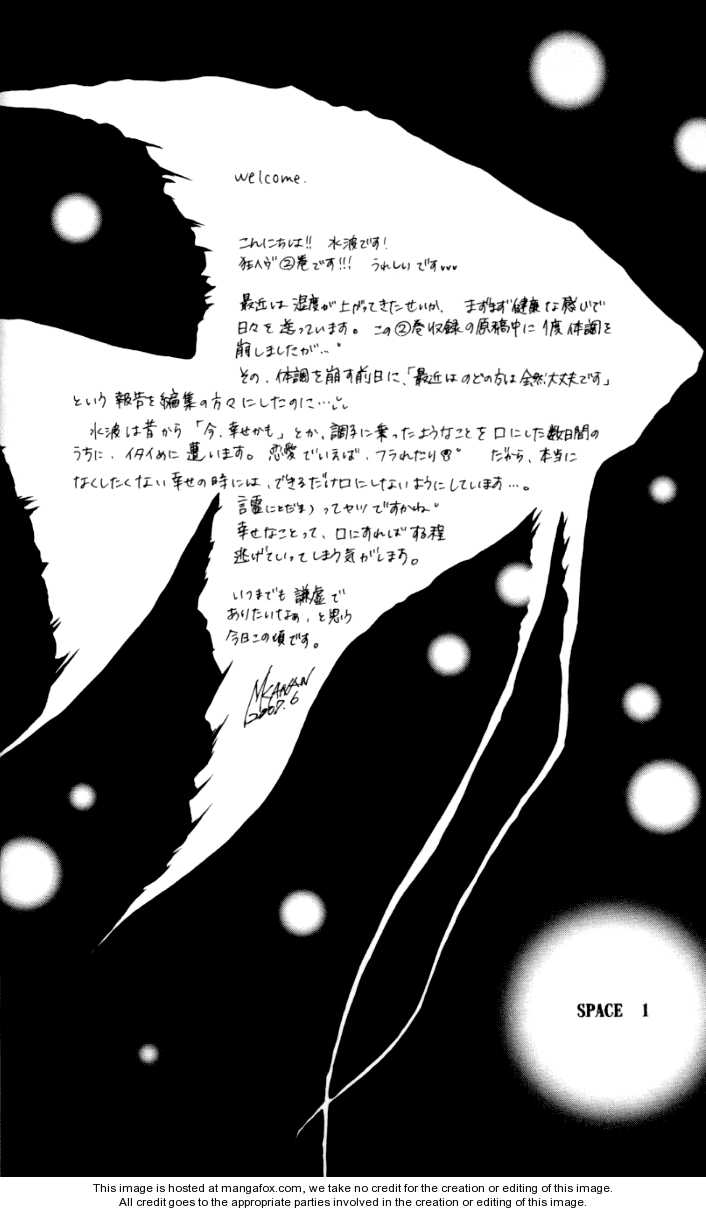 welcome.
こんにちは!! 水波です!
狂ヘヴ②巻です!!! うれしいです
最近は湿度が上がってきたせいか、まずまず健康な喉いで
日々を送っています。この②巻収録の原稿中に1度体調を
崩しましたが…。
その、体調を崩す前日に、「最近はのどの方は全然大丈夫です」
という報告を編集の方々にしたのに…
水波は昔から「今、幸せかも」とか、調子に乗ったようなことを口にした数日間の
うちに、イタイめに遭います。恋愛でいえば、フラれたり。だから、本当に
なくしたくない幸せの時には、できるだけ口にしないようにしています…。
言霊(ことだま)ってヤツですかね。
幸せなことって、口にすればする程
逃げていってしまう気がします。
いつまでも謙虚で
ありたいなぁ、と思う
今日この頃です。
M.KANAN
2007.6
SPACE 1
This image is hosted at mangafox.com, we take no credit for the creation or editing of this image.
All credit goes to the appropriate parties involved in the creation or editing of this image.